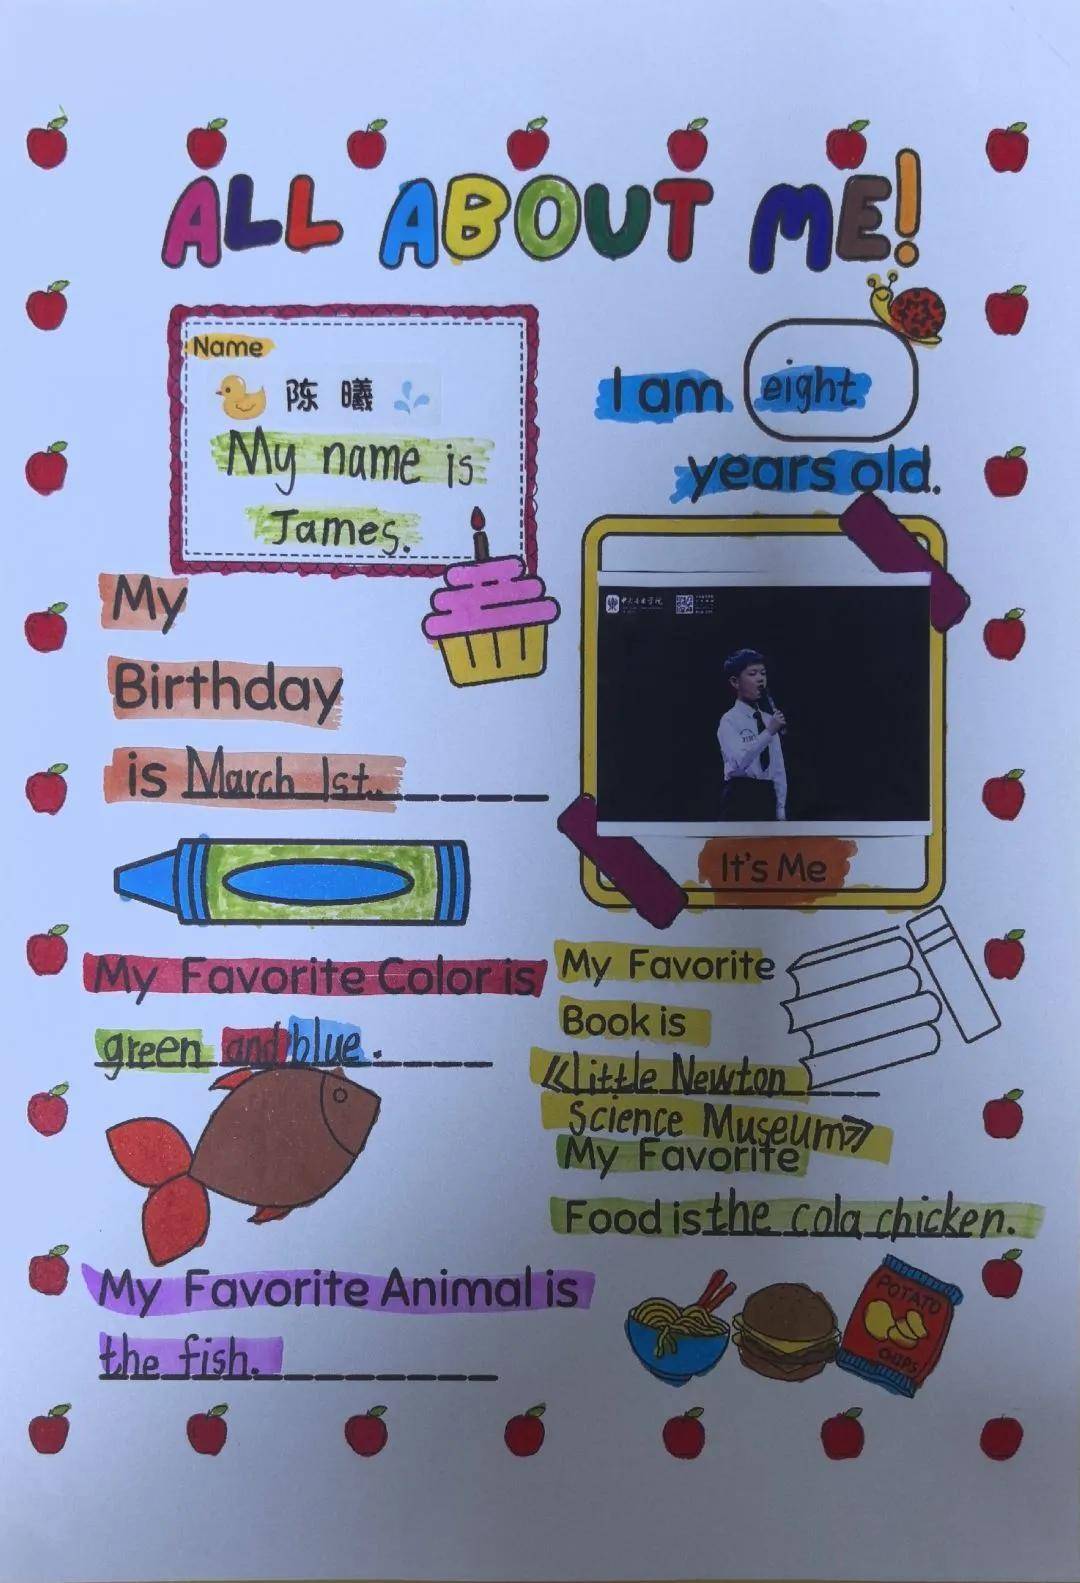 ALL ABOUT ME!
Name
陈 曦
My name is
James.
I am eight
years old.
My
Birthday
is March 1st.
It's Me
My Favorite Color is
green and blue.
My Favorite
Book is
《Little Newton
Science Museum》
My Favorite
Food is the cola chicken.
My Favorite Animal is
the fish.
POTATO
CHIPS